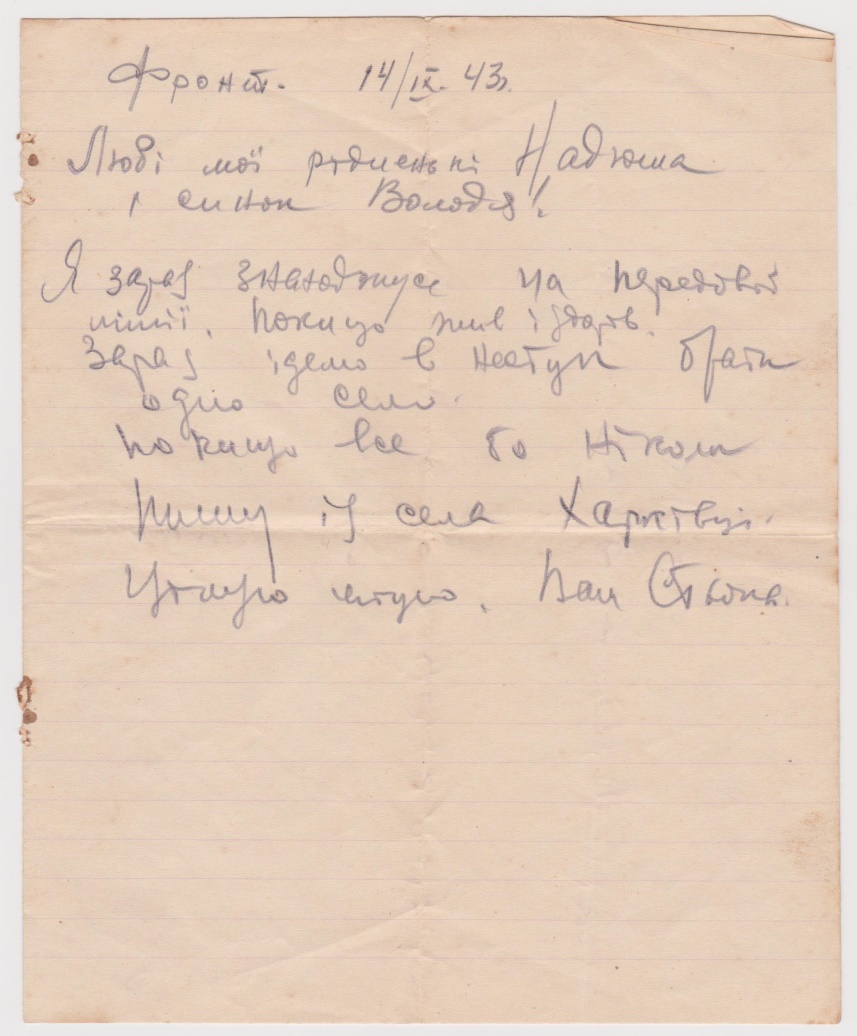 Фронт. 14/IX. 43 г.
Любі мої рідненькі Надюша
і синок Володя!
Я зараз знаходжусь на передовій
лінії. Покищо жив і здоров.
Зараз ідемо в наступ брати
одно село.
Покищо все, бо ніколи
Пишу із села
Цілую міцно. Ваш Стьопа.